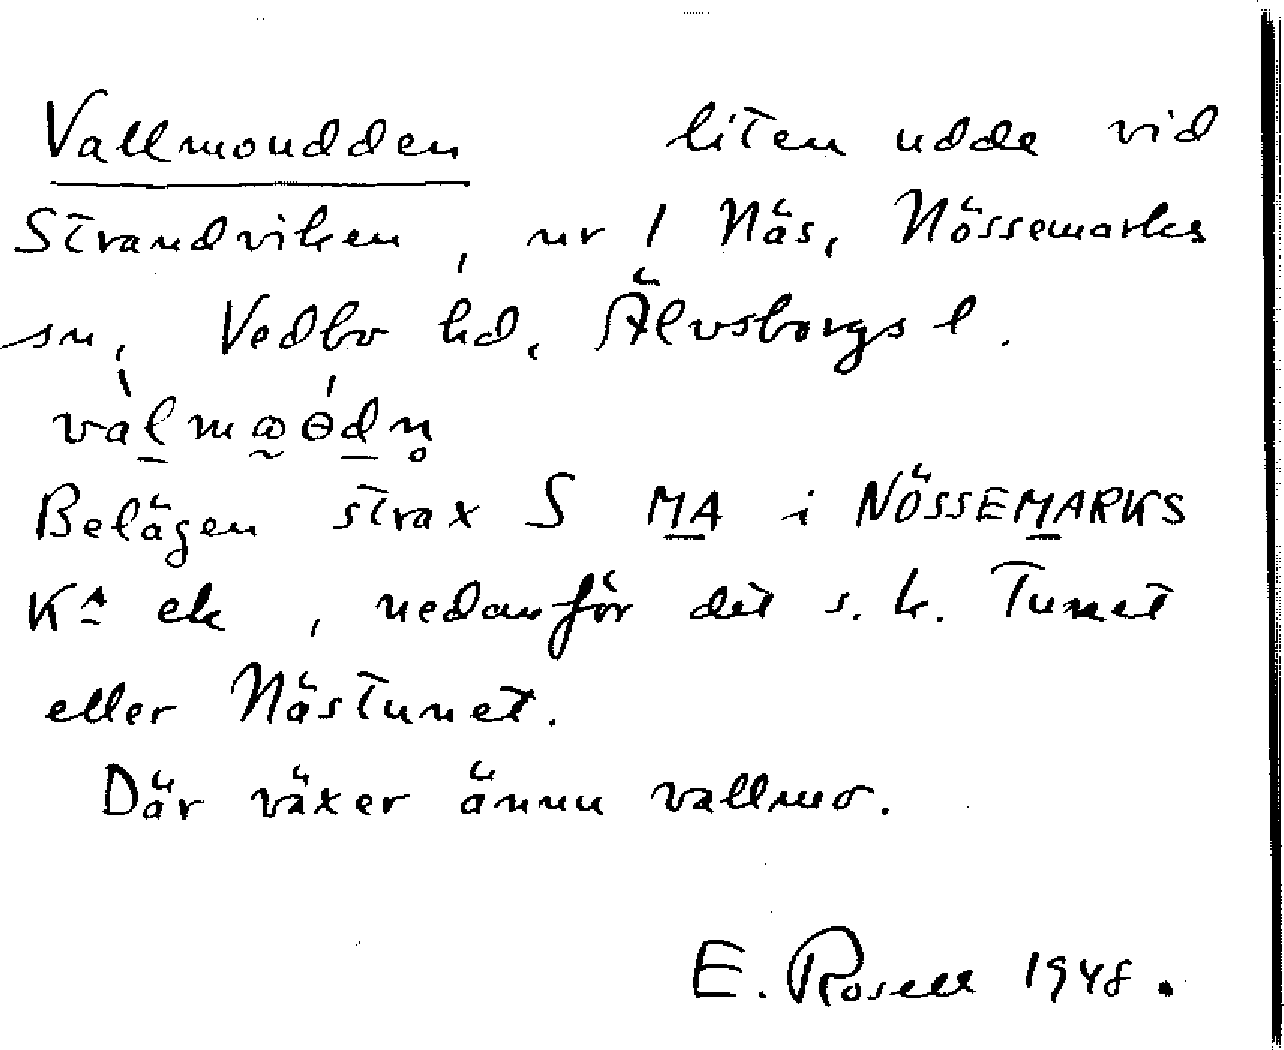 Vallmoudden liten udde vid
Strandviken, nr 1 Näs, Nössemarks
sn, Vedbo hd, Älvsborgs l.
Belägen strax S MA i NÖSSEMARKS
Ka ek, nedanför det s.k. Tunet
eller Nästunet.
Där växer ännu vallmo.
E. Rosell 1948.